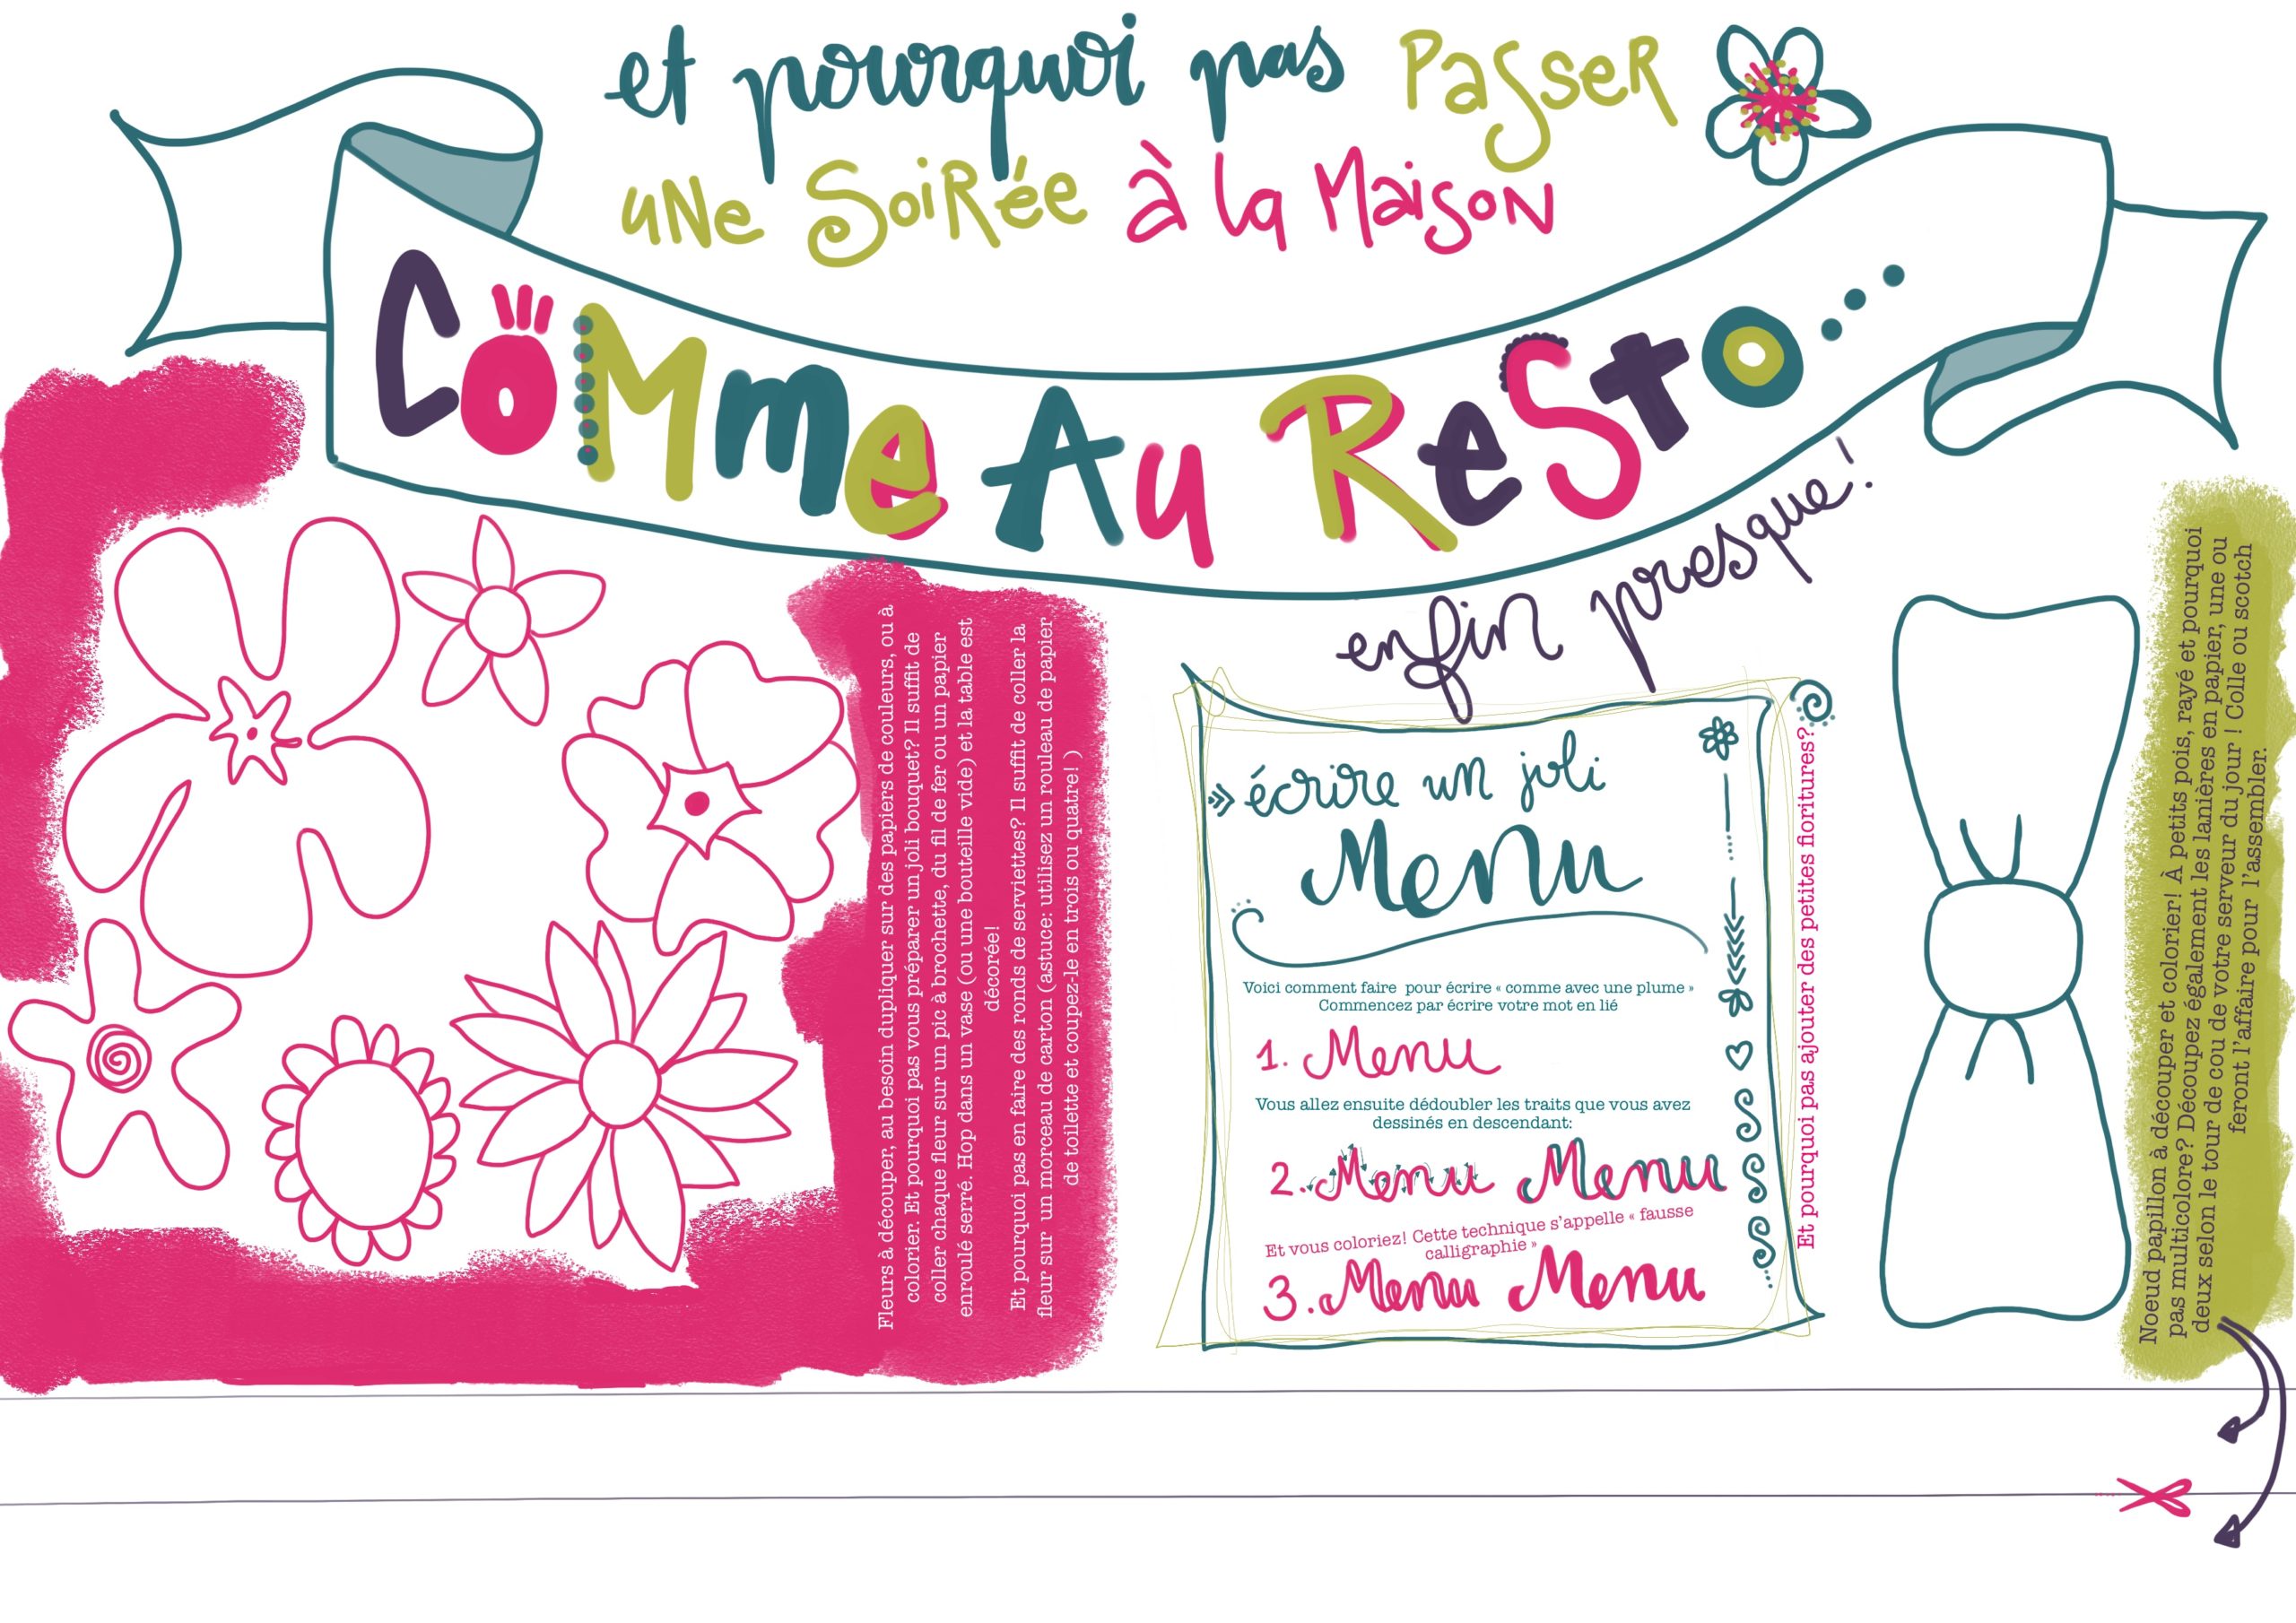 et pourquoi pas PasseR
uNe SoiRée à la MaisoN
CoMme Au ReSto...
enfin presque!
Fleurs à découper, au besoin dupliquer sur des papiers de couleurs, ou à
colorier. Et pourquoi pas vous préparer un joli bouquet? Il suffit de
coller chaque fleur sur un pic à brochette, du fil de fer ou un papier
enroulé serré. Hop dans un vase (ou une bouteille vide) et la table est
décorée!
Et pourquoi pas en faire des ronds de serviettes? Il suffit de coller la
fleur sur un morceau de carton (astuce: utilisez un rouleau de papier
de toilette et coupez-le en trois ou quatre! )
écrire un joli
Menu
Voici comment faire pour écrire « comme avec une plume »
Commencez par écrire votre mot en lié
1. Menu
Vous allez ensuite dédoubler les traits que vous avez
dessinés en descendant:
2. Menu Menu
Et vous coloriez! Cette technique s'appelle « fausse
calligraphie »
3. Menu Menu
Et pourquoi pas ajouter des petites fioritures?
Noeud papillon à découper et colorier! À petits pois, rayé et pourquoi
pas multicolore? Découpez également les lanières en papier, une ou
deux selon le tour de cou de votre serveur du jour ! Colle ou scotch
feront l'affaire pour l'assembler.